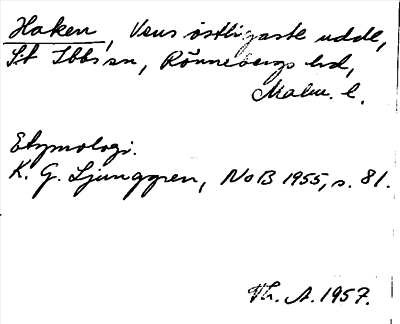 Haken, Vens östligaste udde,
S:t Ibbs sn, Rönnebergs hd,
Malm. l.
Etymologi.
K. G. Ljunggren, NoB 1955, s. 81.
Th. A. 1957.